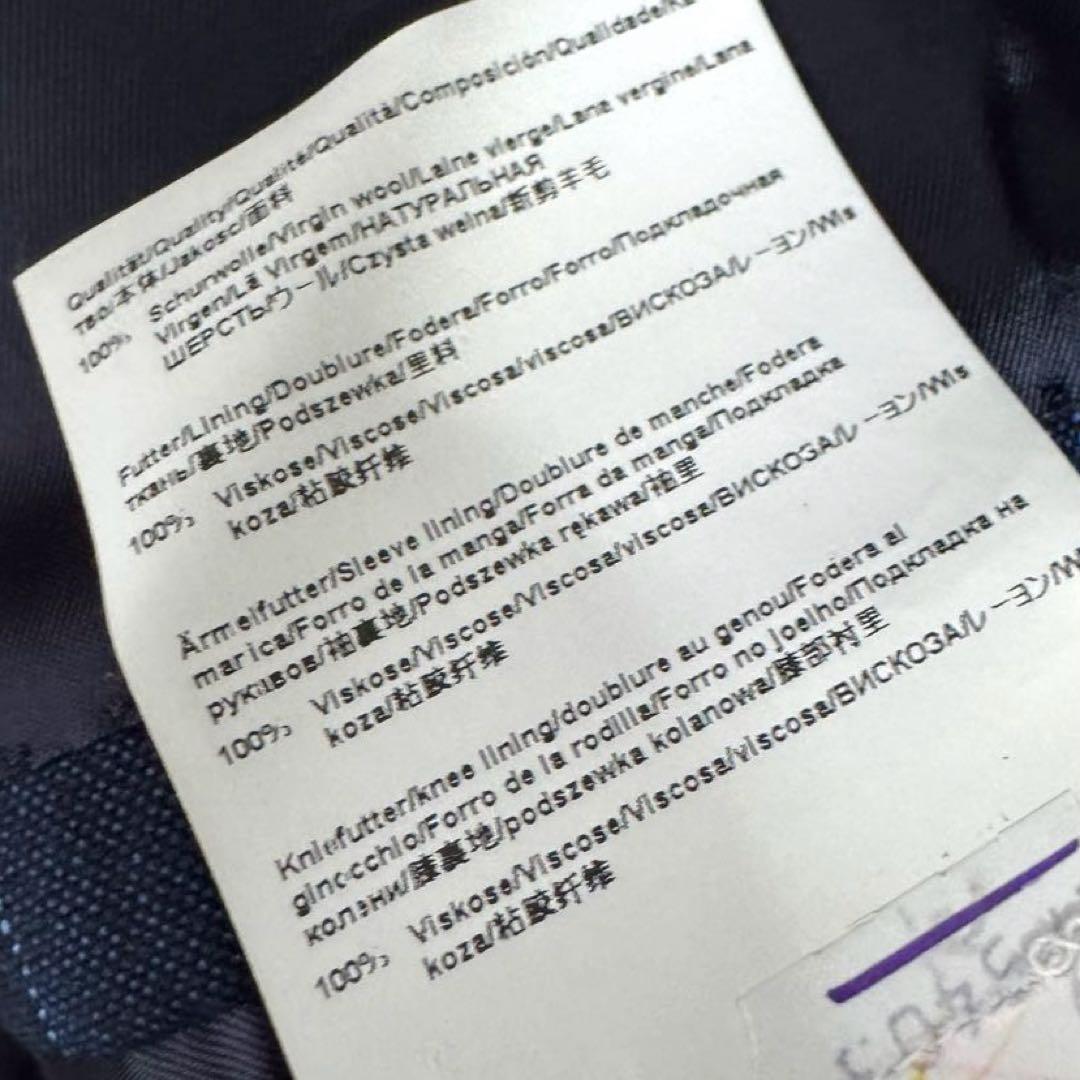 Qualität/Quality/Qualité/Qualità/Composición/Qualidade/Ка
тво/本体/Jakosc/面料
100% Schurwolle/Virgin wool/Laine vierge/Lana vergine/Lana
Virgen/Lã Virgem/НАТУРАЛЬНАЯ
ШЕРСТЬ/ウール/Czysta welna/新剪羊毛
Futter/Lining/Doublure/Fodera/Forro/Forro/Подкладочная
ткань/裏地/Podszewka/里料
100% Viskose/Viscose/Viscose/Viscosa/viscosa/ВИСКОЗА/レーヨン/Wis
koza/粘胶纤维
Ärmelfutter/Sleeve lining/Doublure de manche/Fodera
marica/Forro de la manga/Forra da manga/Подкладка
рукавов/袖裏地/Podszewka rękawa/袖里
100% Viskose/Viscose/Viscose/Viscosa/viscosa/ВИСКОЗА/レーヨン/Wis
koza/粘胶纤维
Kniefutter/knee lining/doublure au genou/Fodera al
ginocchio/Forro de la rodilla/Forro no joelho/Подкладка на
колени/膝裏地/podszewka kolanowa/膝部衬里
100% Viskose/Viscose/Viscosa/viscosa/ВИСКОЗА/レーヨン/W
koza/粘胶纤维